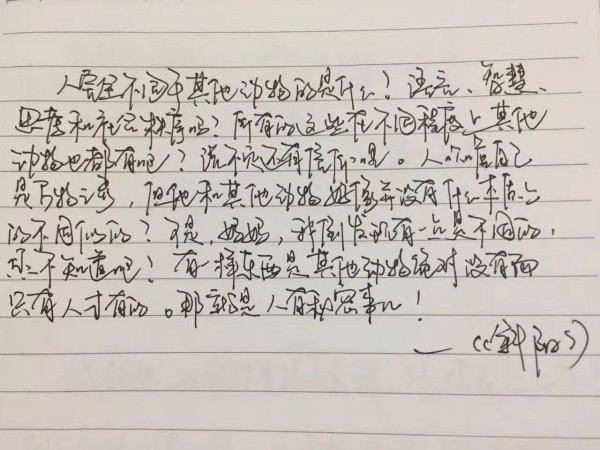 人完全不同于其他动物的是什么？语言、智慧、
思考和社会秩序吗？所有的这些在不同程度上其他
动物也都有吧？说不定还有信仰呢。人吹嘘自己
是万物之灵，但他和其他动物好像并没有什么本质上
的不同似的？可是，妈妈，我倒发现有一点是不同的，
您不知道吧？有一样东西是其他动物绝对没有而
只有人才有的。那就是人有秘密事儿！
—《斜阳》